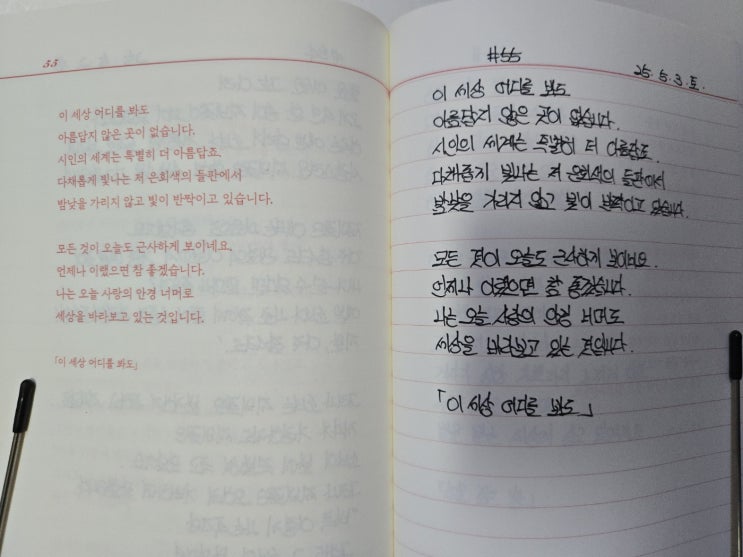 55
이 세상 어디를 봐도
아름답지 않은 곳이 없습니다.
시인의 세계는 특별히 더 아름답죠.
다채롭게 빛나는 저 은회색의 들판에서
밤낮을 가리지 않고 빛이 반짝이고 있습니다.
모든 것이 오늘도 근사하게 보이네요.
언제나 이랬으면 참 좋겠습니다.
나는 오늘 사랑의 안경 너머로
세상을 바라보고 있는 것입니다.
「이 세상 어디를 봐도」
#55
25. 5. 3. 토.
이 세상 어디를 봐도
아름답지 않은 곳이 없습니다.
시인의 세계는 특별히 더 아름답죠.
다채롭게 빛나는 저 은회색의 들판에서
밤낮을 가리지 않고 빛이 반짝이고 있습니다.
모든 것이 오늘도 근사하게 보이네요.
언제나 이랬으면 참 좋겠습니다.
나는 오늘 사랑의 안경 너머로
세상을 바라보고 있는 것입니다.
「이 세상 어디를 봐도」